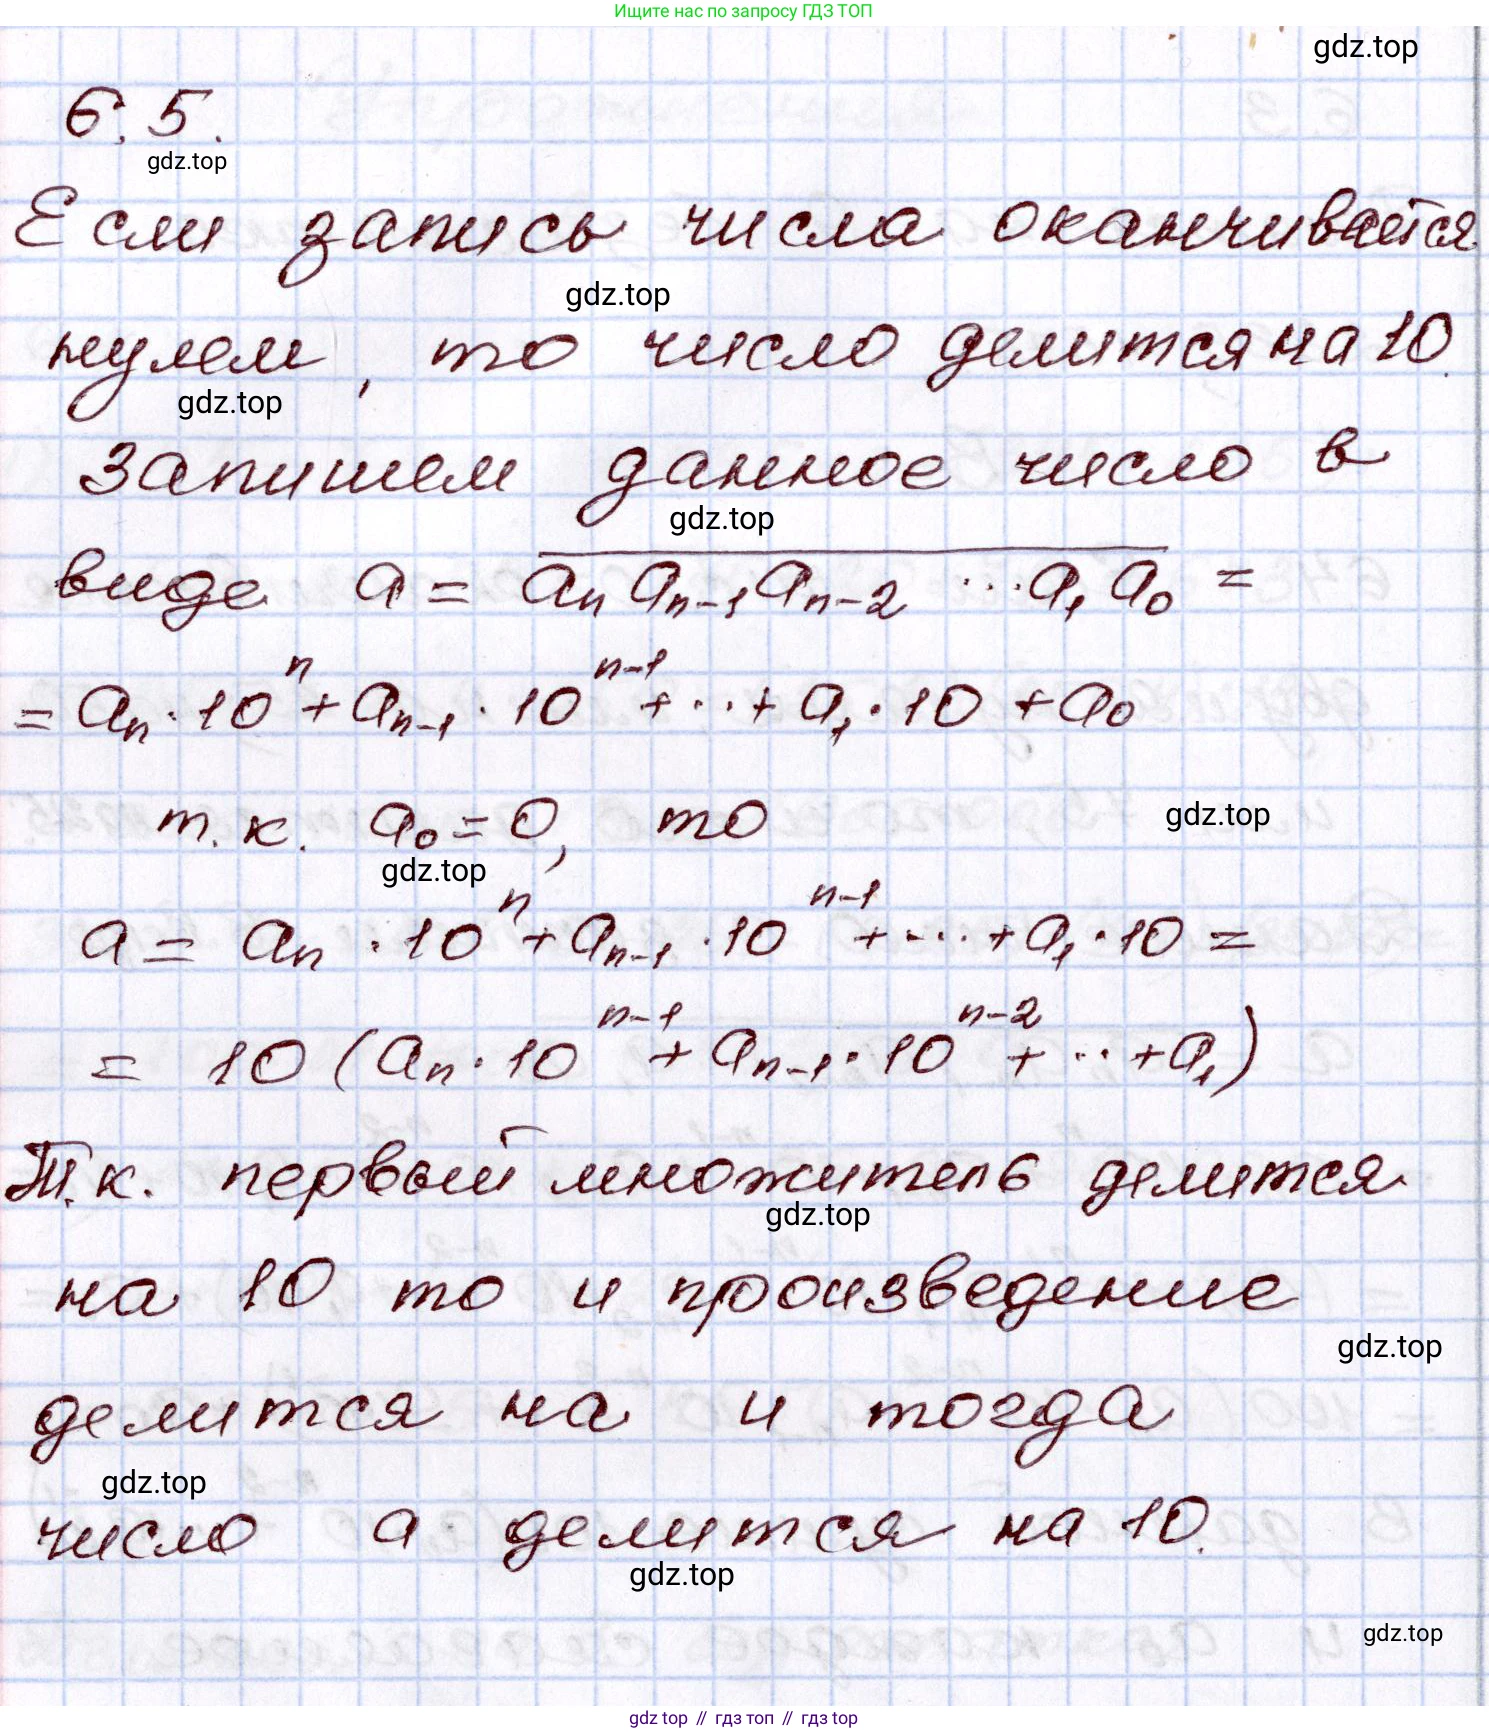 Ищите нас по запросу ГДЗ ТОП
gdz.top
6.5.
gdz.top
Если запись числа оканчивается
gdz.top
нулем, то число делится на 10.
gdz.top
Запишем данное число в
gdz.top
виде a = \overline{a_n a_{n-1} a_{n-2} ... a_1 a_0} =
= a_n · 10^n + a_{n-1} · 10^{n-1} + ... + a_1 · 10 + a_0
т.к. a_0 = 0, то
gdz.top
gdz.top
a = a_n · 10^n + a_{n-1} · 10^{n-1} + ... + a_1 · 10 =
= 10 (a_n · 10^{n-1} + a_{n-1} · 10^{n-2} + ... + a_1)
Т.к. первый множитель делится
gdz.top
на 10 то и произведение
gdz.top
делится на и тогда
gdz.top
число a делится на 10.
gdz.top
gdz.top
gdz top // гдз топ // гдз top